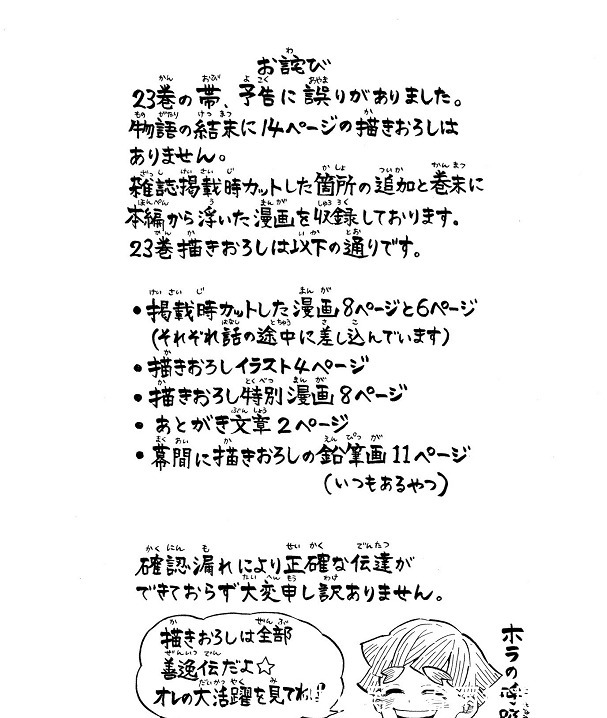 お詫び
23巻の帯、予告に誤りがありました。
物語の結末に14ページの描きおろしは
ありません。
雑誌掲載時カットした箇所の追加と巻末に
本編から浮いた漫画を収録しております。
23巻描きおろしは以下の通りです。
・掲載時カットした漫画8ページと6ページ
(それぞれ話の途中に差し込んでいます)
・描きおろしイラスト4ページ
・描きおろし特別漫画8ページ
・あとがき文章2ページ
・幕間に描きおろしの鉛筆画11ページ
(いつもあるやつ)
確認漏れにより正確な伝達が
できておらず大変申し訳ありません。
描きおろしは全部
善逸伝だよ☆
オレの大活躍を見てね!
ホラの